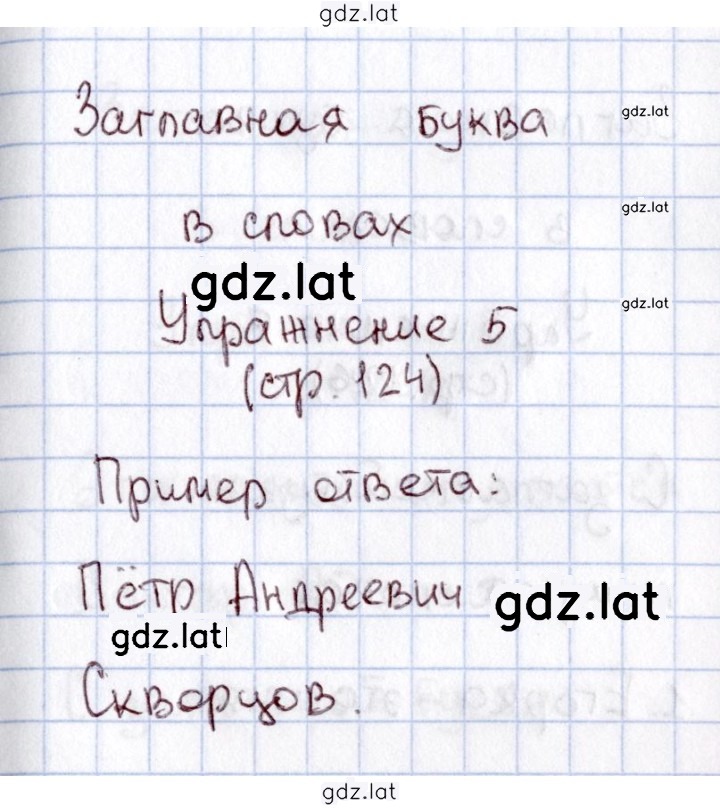 gdz.lat
Заглавная буква
gdz.lat
в словах
gdz.lat
gdz.lat
gdz.lat
Упражнение 5
(стр. 124)
Пример ответа:
Пётр Андреевич
gdz.lat
gdz.lat
Скворцов.
gdz.lat